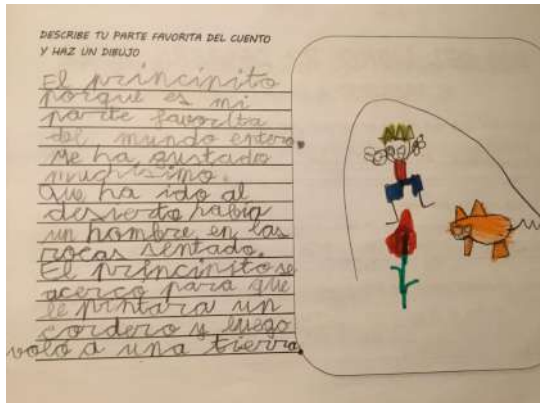 DESCRIBE TU PARTE FAVORITA DEL CUENTO
Y HAZ UN DIBUJO
El principito
porque es mi
parte favorita
del mundo entero.
Me ha gustado
muchísimo.
Que ha ido al
desierto había
un hombre en las
rocas sentado.
El principito se
acercó para que
le pintara un
cordero y luego
voló a una tierra.